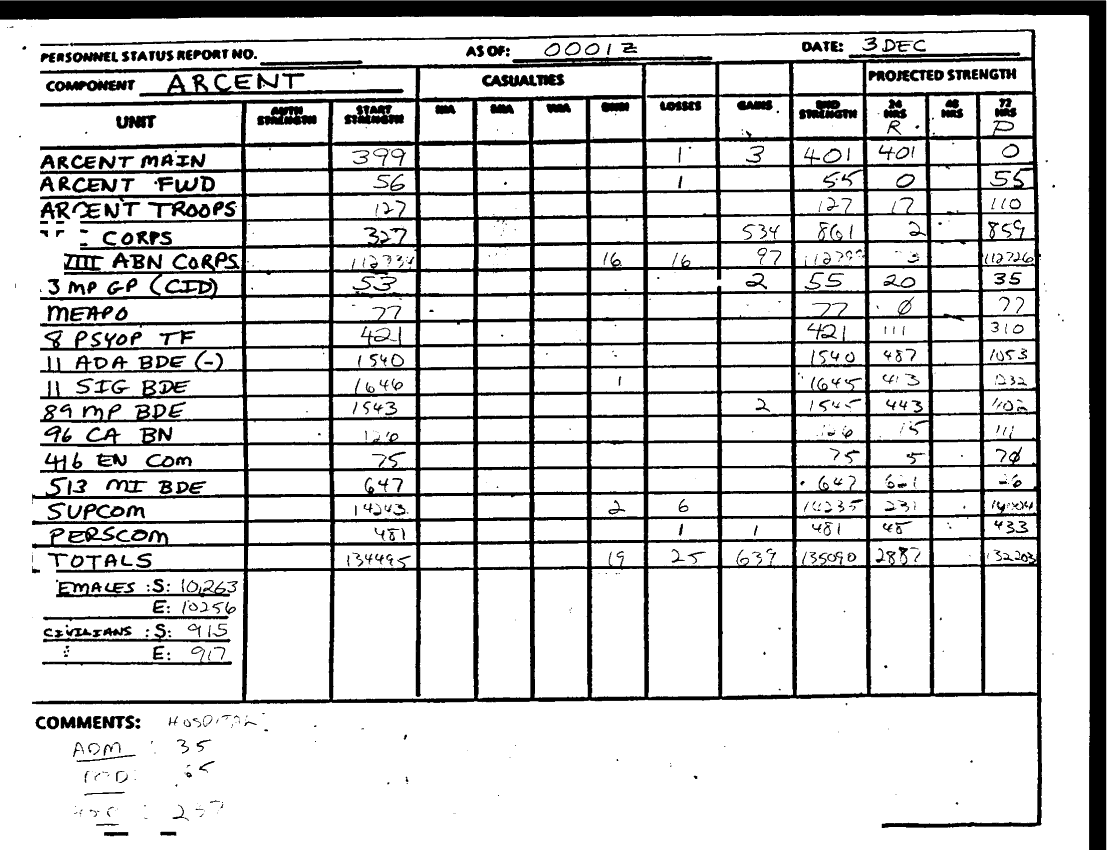 PERSONNEL STATUS REPORT NO. AS OF: 0001Z DATE: 3 DEC
COMPONENT ARCENT CASUALTIES PROJECTED STRENGTH
UNIT AUTH STRENGTH START STRENGTH KIA MIA WIA DNBI LOSSES GAINS END STRENGTH 24 HRS 48 HRS 72 HRS
R P
ARCENT MAIN 399 1 3 401 401 0
ARCENT FWD 56 1 55 0 55
ARCENT TROOPS 127 127 17 110
CORPS 327 534 861 2 859
III ABN CORPS 16 16 97 112726
3 MP GP (CID) 53 2 55 20 35
MEAPO 77 77 Ø 77
8 PSYOP TF 421 421 111 310
11 ADA BDE (-) 1540 1540 487 1053
11 SIG BDE 1646 1 1645 413 1232
89 MP BDE 1543 2 1545 443
96 CA BN 126 126 15 111
416 EN COM 75 75 5 7Ø
513 MI BDE 647 647 621 26
SUPCOM 14243 2 6 14235 231 14004
PERSCOM 481 1 1 481 48 433
TOTALS 134495 19 25 639 135090 2887 132203
EMALES : S: 10,263
E: 10256
CIVILIANS : S: 915
E: 917
COMMENTS: HOSPITAL:
ADM : 35
65
237